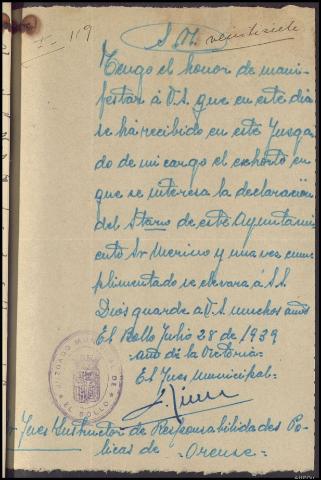 119
veintisiete
Tengo el honor de mani-
festar á V.S. que en este dia
se ha recibido en este Juzga-
do de mi cargo el exhorto en
que se interesa la declaración
del Strario de este Ayuntami-
ento Sr Merino y una vez cum-
plimentado se elevara á S.S.
Dios guarde a V.S. muchos años
El Bollo Julio 28 de 1939
año de la Victoria.
El Juez Municipal.
JUZGADO MUNICIPAL DE
EL BOLLO
Sr Juez Instructor de Responsabilidades Po-
liticas de Orense